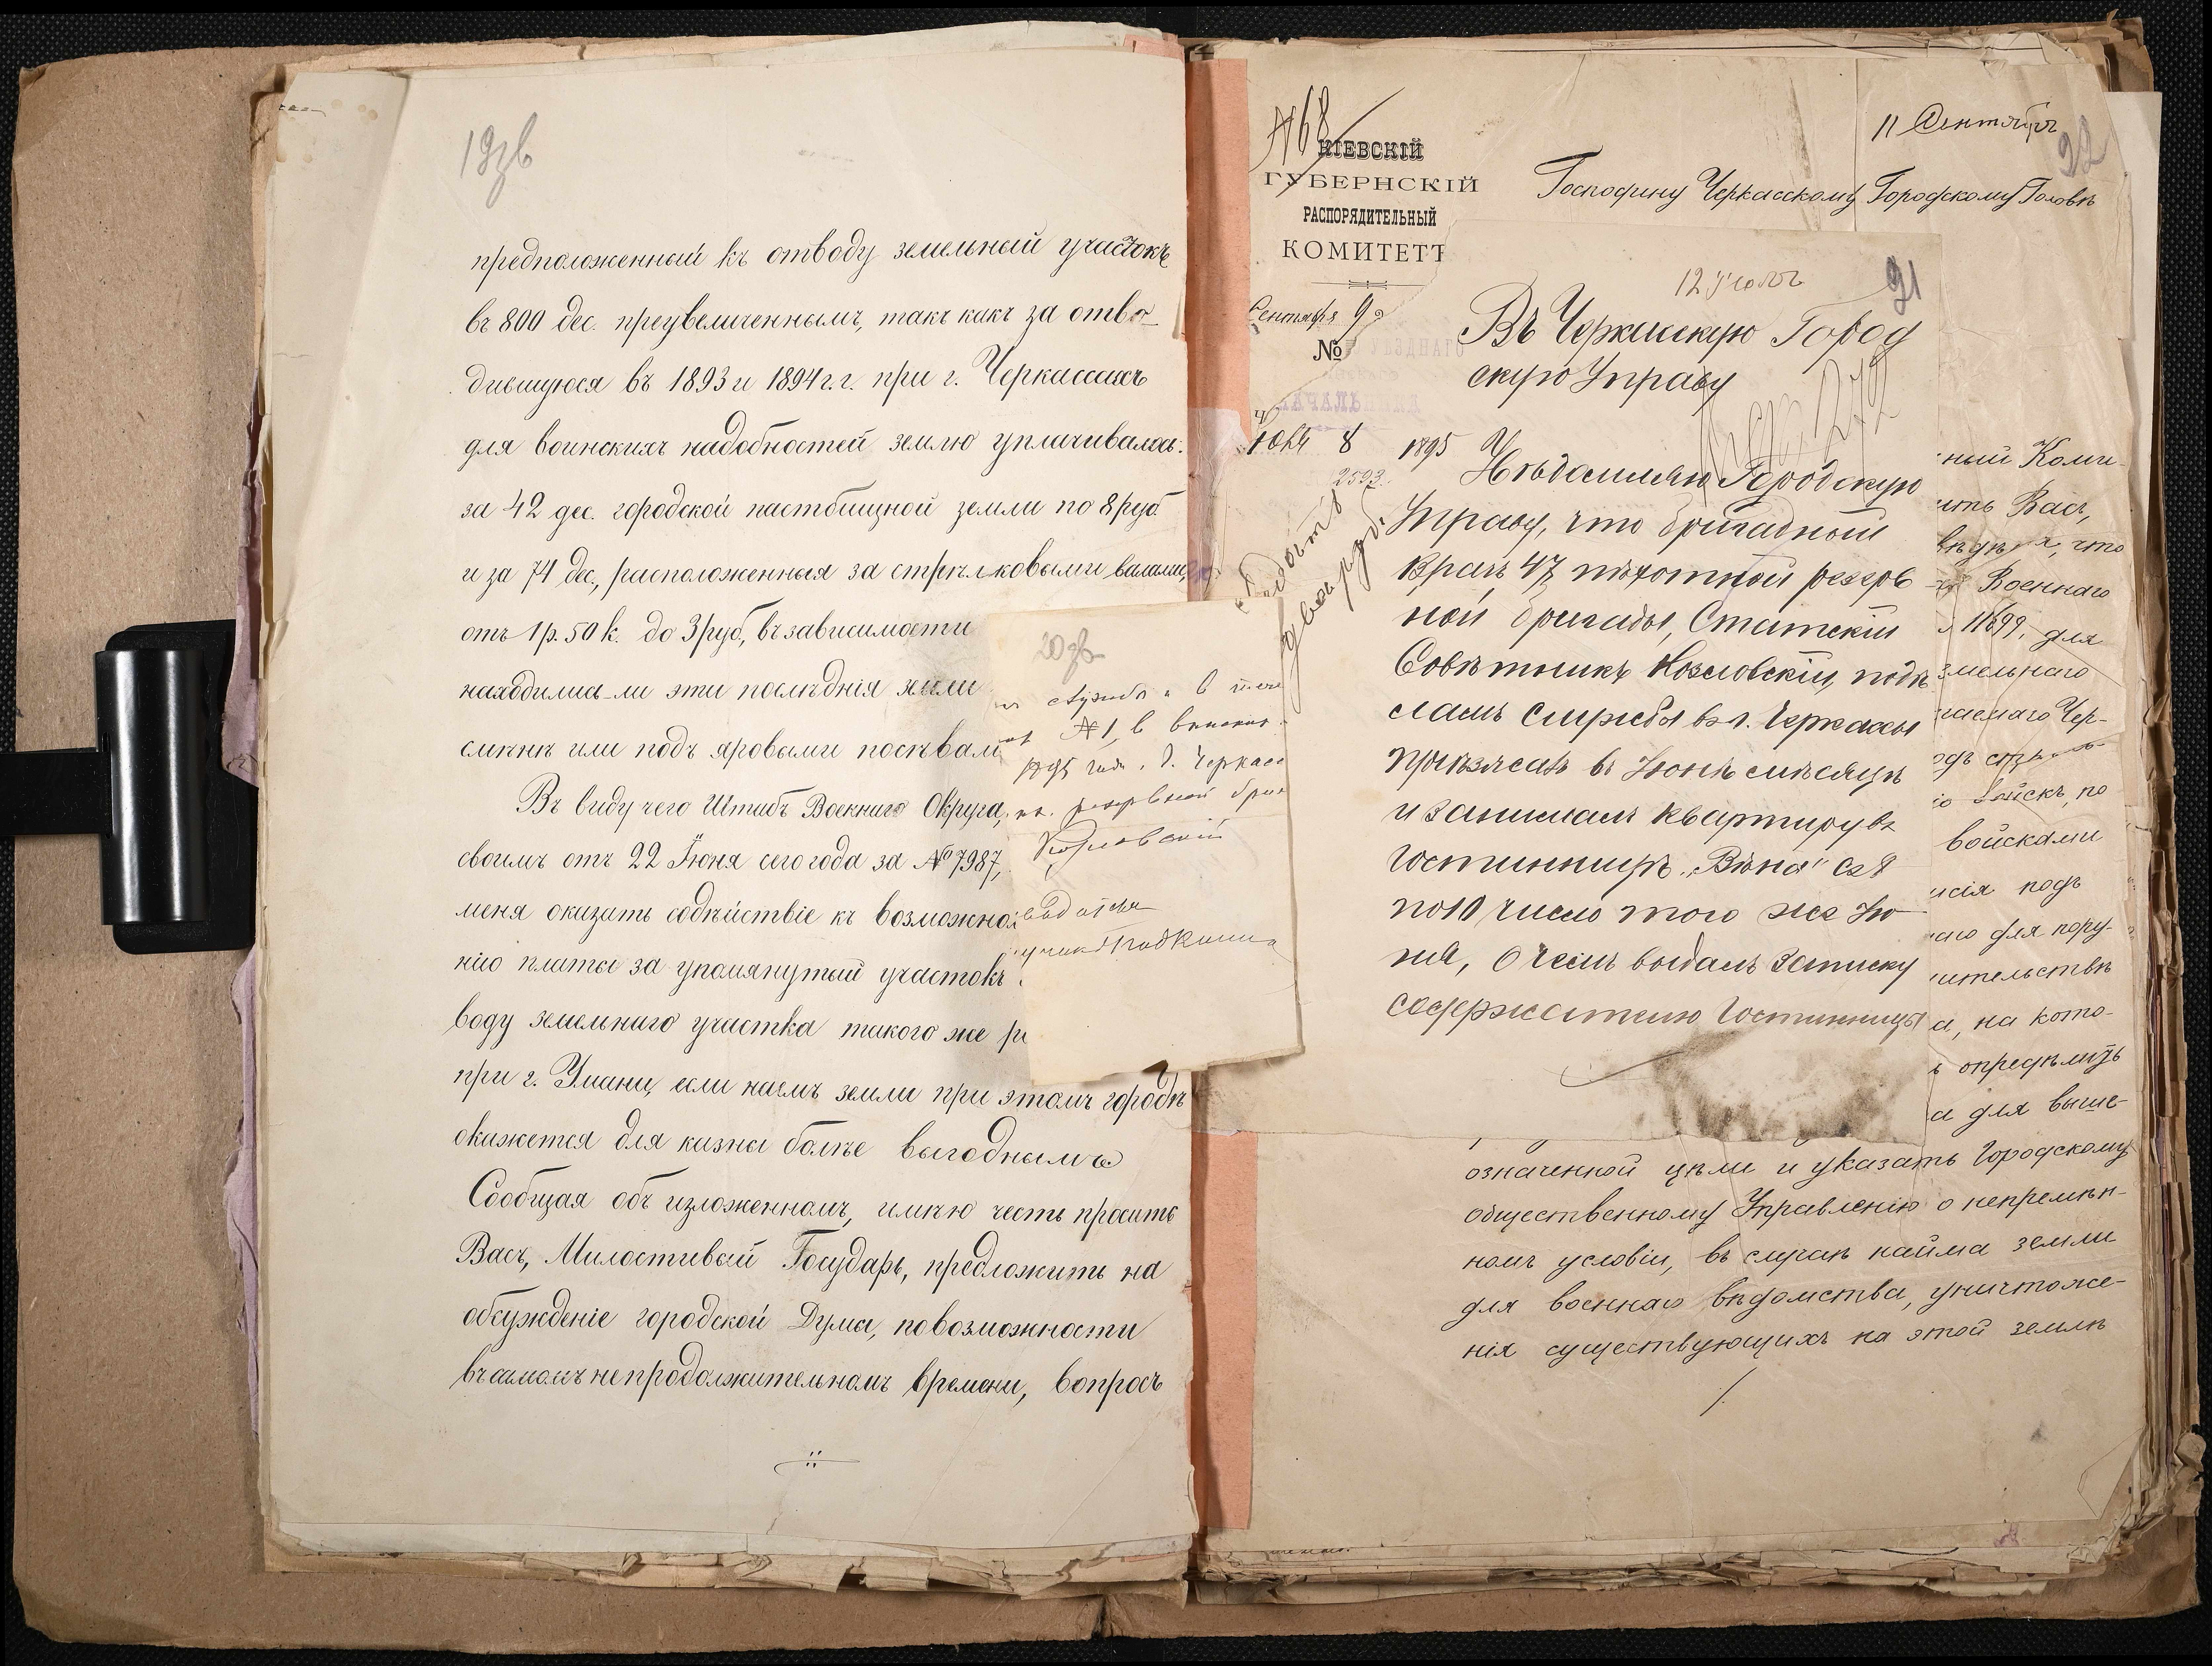 19зв
предположенный къ отводу земельный участокъ
въ 800 дес. преувеличеннымъ, такъ какъ за отво-
дившуюся въ 1893 и 1894 г.г. при г. Черкассахъ
для воинскихъ надобностей землю уплачивалось:
за 42 дес. городской пастбищной земли по 8 руб.
и за 74 дес., расположенныя за стрѣлковыми валами,
отъ 1 р. 50 к. до 3 руб., въ зависимости
находились-ли эти послѣднія земли
или подъ яровыми посѣвам
Въ виду чего Штабъ Военнаго Округа,
своимъ отъ 22 Іюня сего года за № 7987,
меня оказать содѣйствіе къ возможно
нію платы за упомянутый участокъ
воду земельнаго участка такого же р
при г. Умани, если наемъ земли при этомъ городѣ
окажется для казны болѣе выгоднымъ.
Сообщая объ изложенномъ, имѣю честь просить
Васъ, Милостивый Государь, предложить на
обсужденіе городской Думы, по возможности
въ самомъ непродолжительномъ времени, вопросъ
20зв
службы в
№ 1, в
1895 года г. Черкас
резервной бриг
Козловский
№68
КІЕВСКІЙ
ГУБЕРНСКІЙ
РАСПОРЯДИТЕЛЬНЫЙ
КОМИТЕТЪ
Сентября 9
№
11 Сентября
22
Господину Черкасскому Городскому Головѣ
12 Іюля
21
Въ Черкасскую Город
скую Управу
8 1895
2593
Увѣдомляю Городскую
Управу, что бригадный
врачъ 47 пѣхотной резерв
ной бригады, Статскій
Совѣтникъ Козловскій, подѣ
ламъ службы въ г. Черкассы
пріѣзжалъ въ Іюнѣ мѣсяцѣ
и занималъ квартиру въ
гостинницѣ „Вѣна" съ 8
по 10 число того же Ію
ня, о чемъ выдалъ записку
содержателю гостинницы
ный Коми-
ить Васъ,
что
Военнаго
11699, для
земельнаго
Чер-
войскъ, по
войсками
подъ
для пору-
ительствѣ
а, на кото-
опредѣлить
а для выше-
означенной цѣли и указать Городскому
общественному Управленію о непремѣн-
номъ условіи, въ случаѣ найма земли
для военнаго вѣдомства, уничтоже-
нія существующихъ на этой землѣ